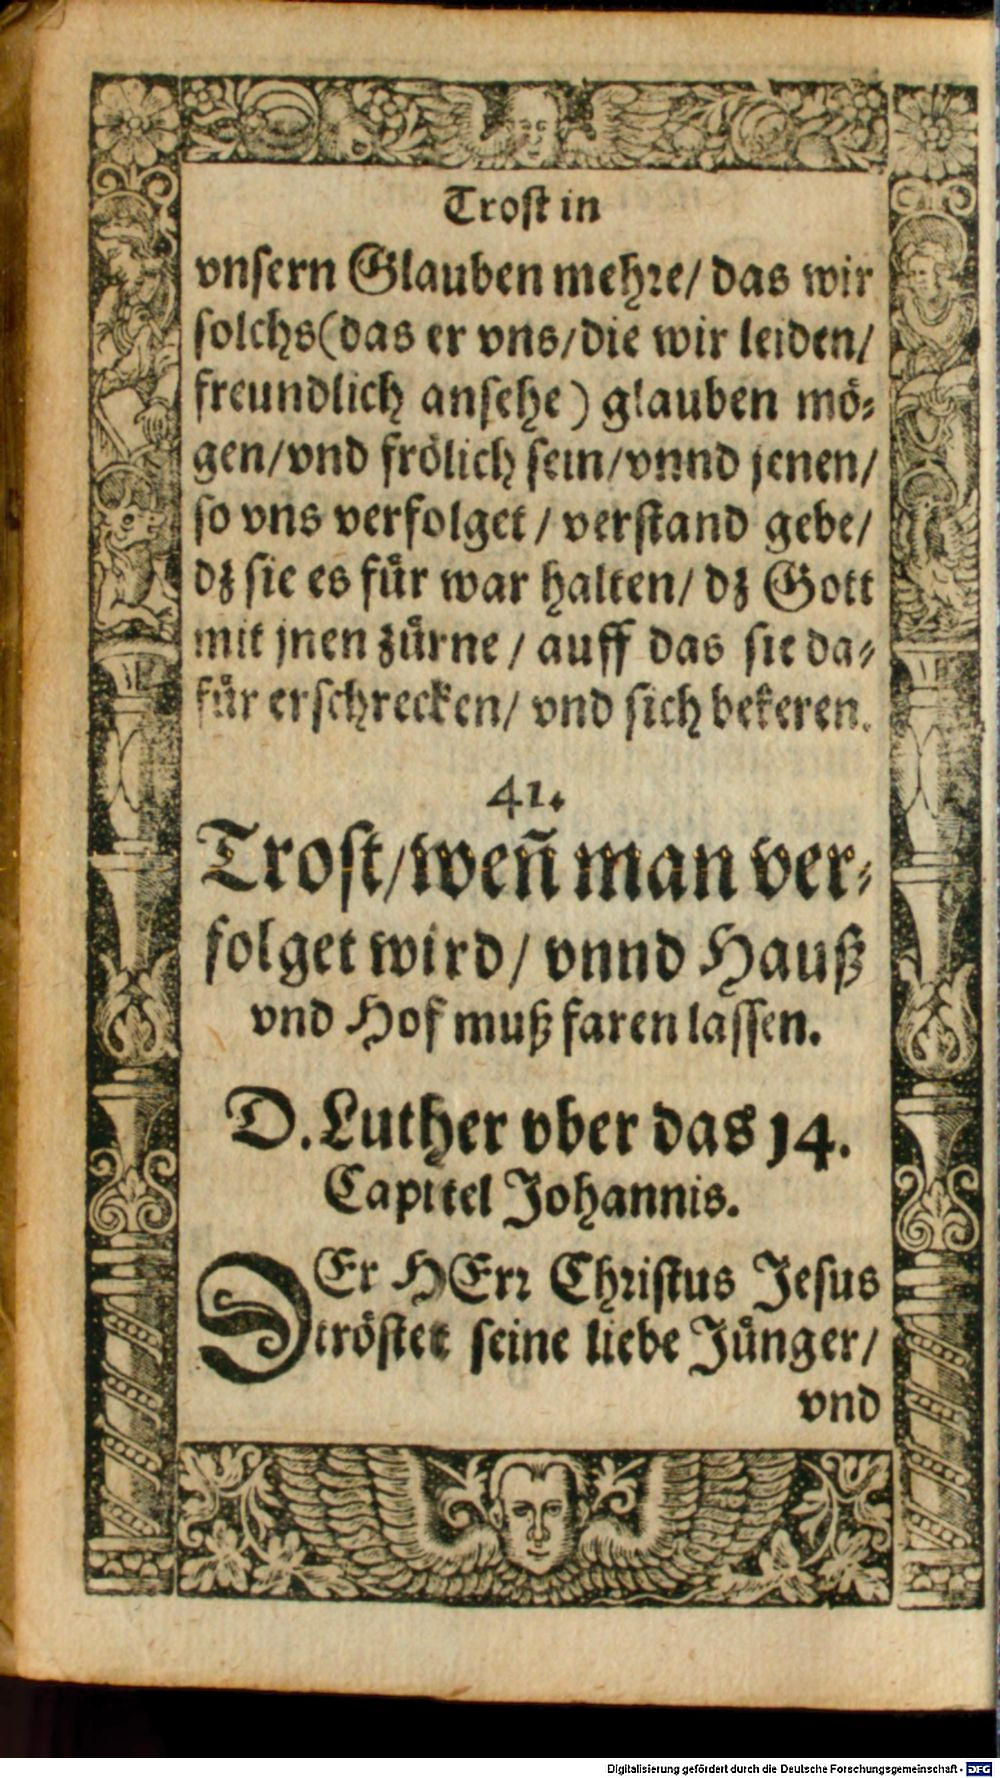 Trost in
vnsern Glauben mehre/ das wir
solchs(das er vns/die wir leiden/
freundlich ansehe) glauben mö⸗
gen/vnd frölich sein/vnnd jenen/
so vns verfolget / verstand gebe/
dz sie es fuͤr war halten/ dz Gott
mit jnen zuͤrne / auff das sie da⸗
fuͤr erschrecken/ vnd sich bekeren.
41.
Trost/weñ man ver⸗
folget wird/ vnnd Hauß
vnd Hof muß faren lassen.
D. Luther vber das 14.
Capittel Johannis.
DEr HErr Christus Jesus
tröstet seine liebe Juͤnger/
vnd
Digitalisierung gefördert durch die Deutsche Forschungsgemeinschaft - DFG